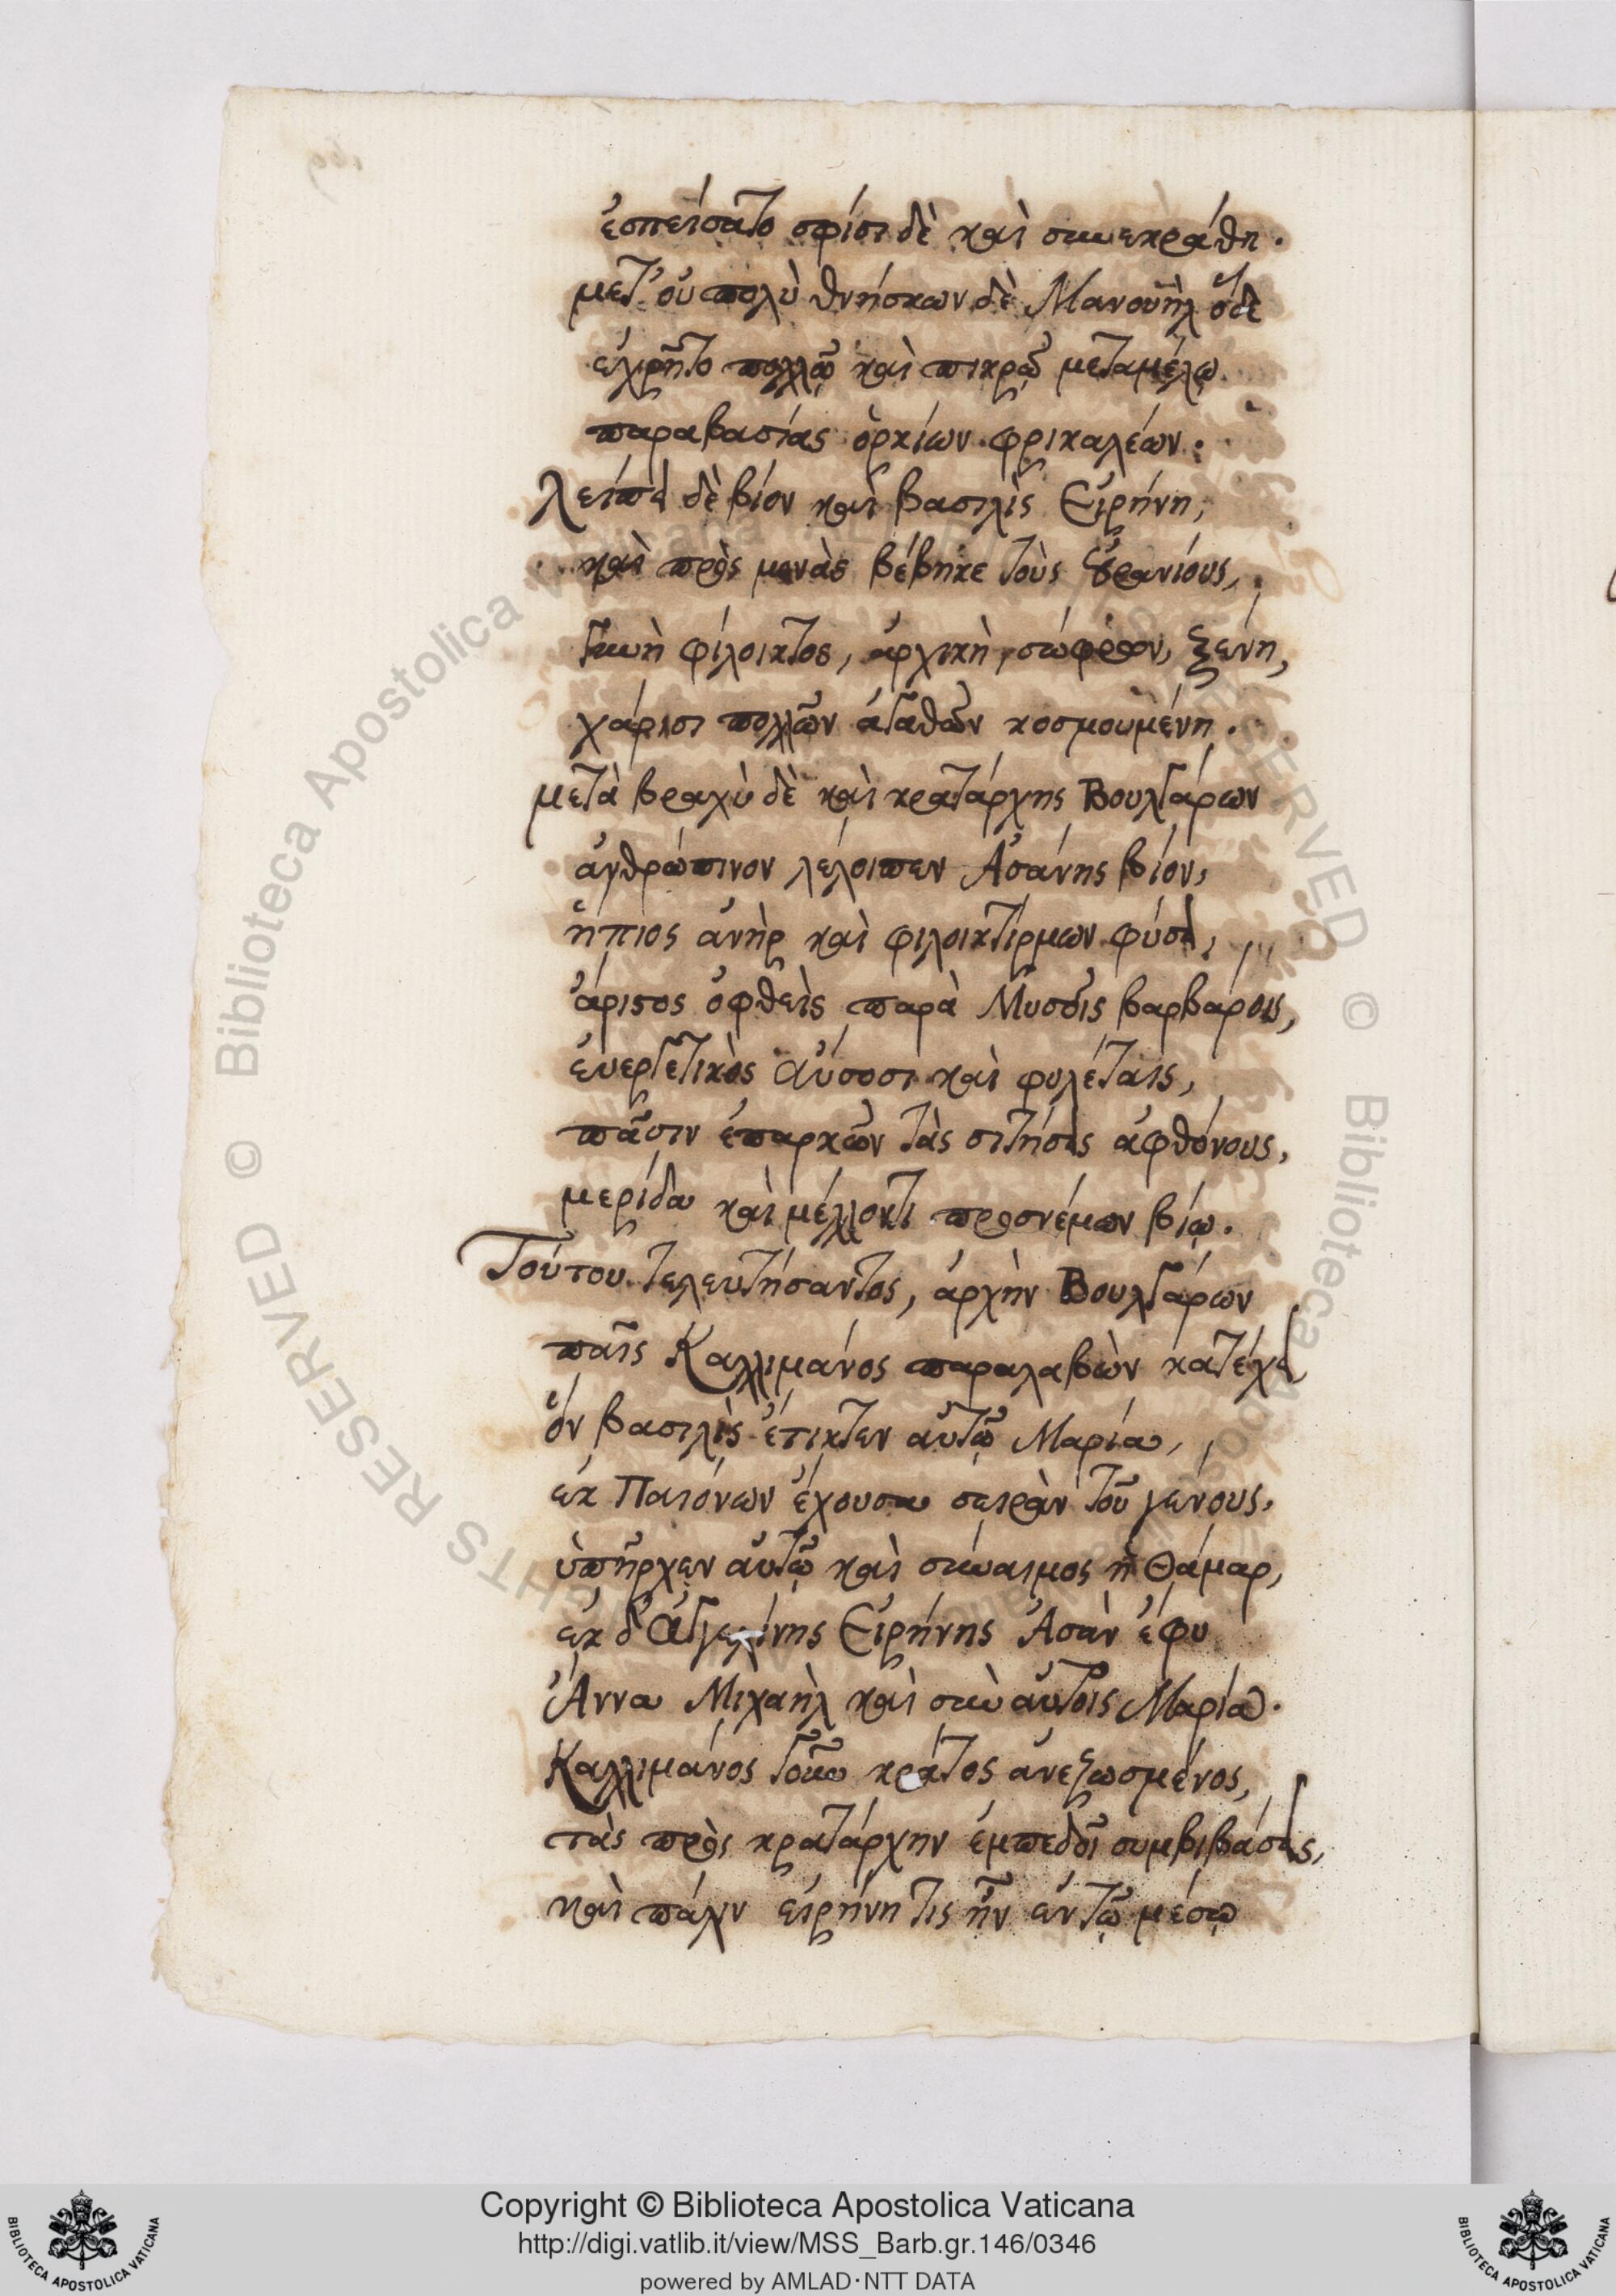 ἐσπείσατο σφίσι δὲ καὶ συνεκράθη.
μετ' οὐ πολὺ θνήσκων δὲ Μανουὴλ ὅδε
ἐχρῆτο πολλῷ καὶ πικρῷ μεταμέλῳ
παραβασίας ὁρκίων φρικαλέων.
λείπει δὲ βίον καὶ βασιλὶς Εἰρήνη,
καὶ πρὸς μονὰς βέβηκε τοὺς οὐρανίους,
γυνὴ φίλοικτος, ἀρχικὴ, σώφρων, ξένη,
χάρισι πολλῶν ἀγαθῶν κοσμουμένη.
μετὰ βραχὺ δὲ καὶ κρατάρχης Βουλγάρων
ἀνθρώπινον λέλοιπεν Ἀσάνης βίον,
ἤπιος ἀνὴρ καὶ φιλοικτίρμων φύσει,
ἄριστος ὀφθεὶς παρὰ Μυσοῖς βαρβάροις,
εὐεργετικὸς Αὔσοσι καὶ φυλέταις,
πᾶσιν ἐπαρκῶν τὰς σιτήσεις ἀφθόνους,
μερίδα καὶ μέλλοντι προσνέμων βίῳ.
Τούτου τελευτήσαντος, ἀρχὴν Βουλγάρων
παῖς Καλλιμάνος παραλαβὼν κατέχει
ὃν βασιλὶς ἔτικτεν αὐτῷ Μαρία,
ἐκ Παιόνων ἔχουσα σειρὰν τοῦ γένους,
ὑπῆρχεν αὐτῷ καὶ σύναιμος ἡ Θάμαρ,
ἐκ δ' Ἀγγελίνης Εἰρήνης Ἀσὰν ἔφυ
Ἄννα Μιχαὴλ καὶ σὺν αὐτοῖς Μαρία.
Καλλιμάνος γοῦν κράτος ἀνεζωσμένος,
τὰς πρὸς κρατάρχην ἐμπεδοῖ συμβιβάσεις,
καὶ πάλιν εἰρήνη τις ἦν ἐν τῷ μέσῳ
Copyright © Biblioteca Apostolica Vaticana
http://digi.vatlib.it/view/MSS_Barb.gr.146/0346
powered by AMLAD·NTT DATA